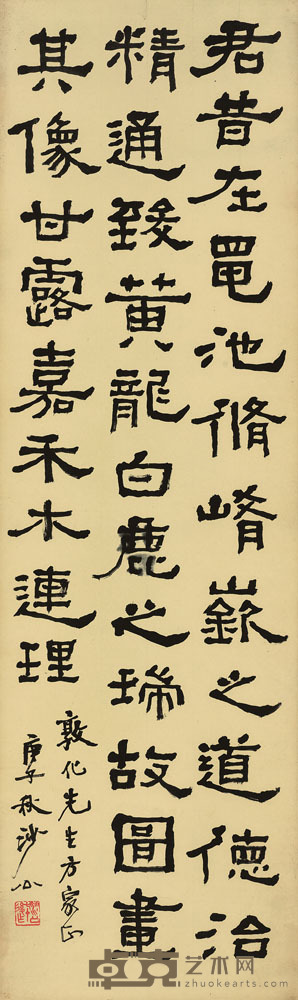 君昔在黽池脩崤嶔之道德治
精通致黃龍白鹿之瑞故圖畫
其像甘露嘉禾木連理
敦化先生方家正
庚子秋
卓克艺术网
www.zhuokearts.com